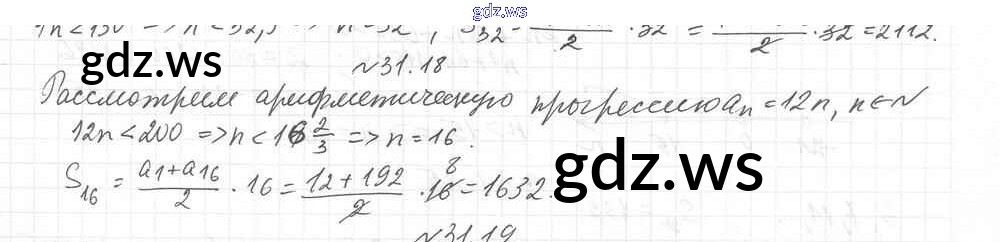 gdz.ws
4n<130 => n<32,5 => n=32, S₃₂ = ―/2 · 32 = ―/2 · 32 = 2112.
gdz.ws
№31.18.
Рассмотрим арифметическую прогрессию aₙ = 12n, n∈N
12n<200 => n<16 2/3 => n=16.
S₁₆ = (a₁+a₁₆)/2 · 16 = (12+192)/2 · 16 8 = 1632.
gdz.ws
№31.19